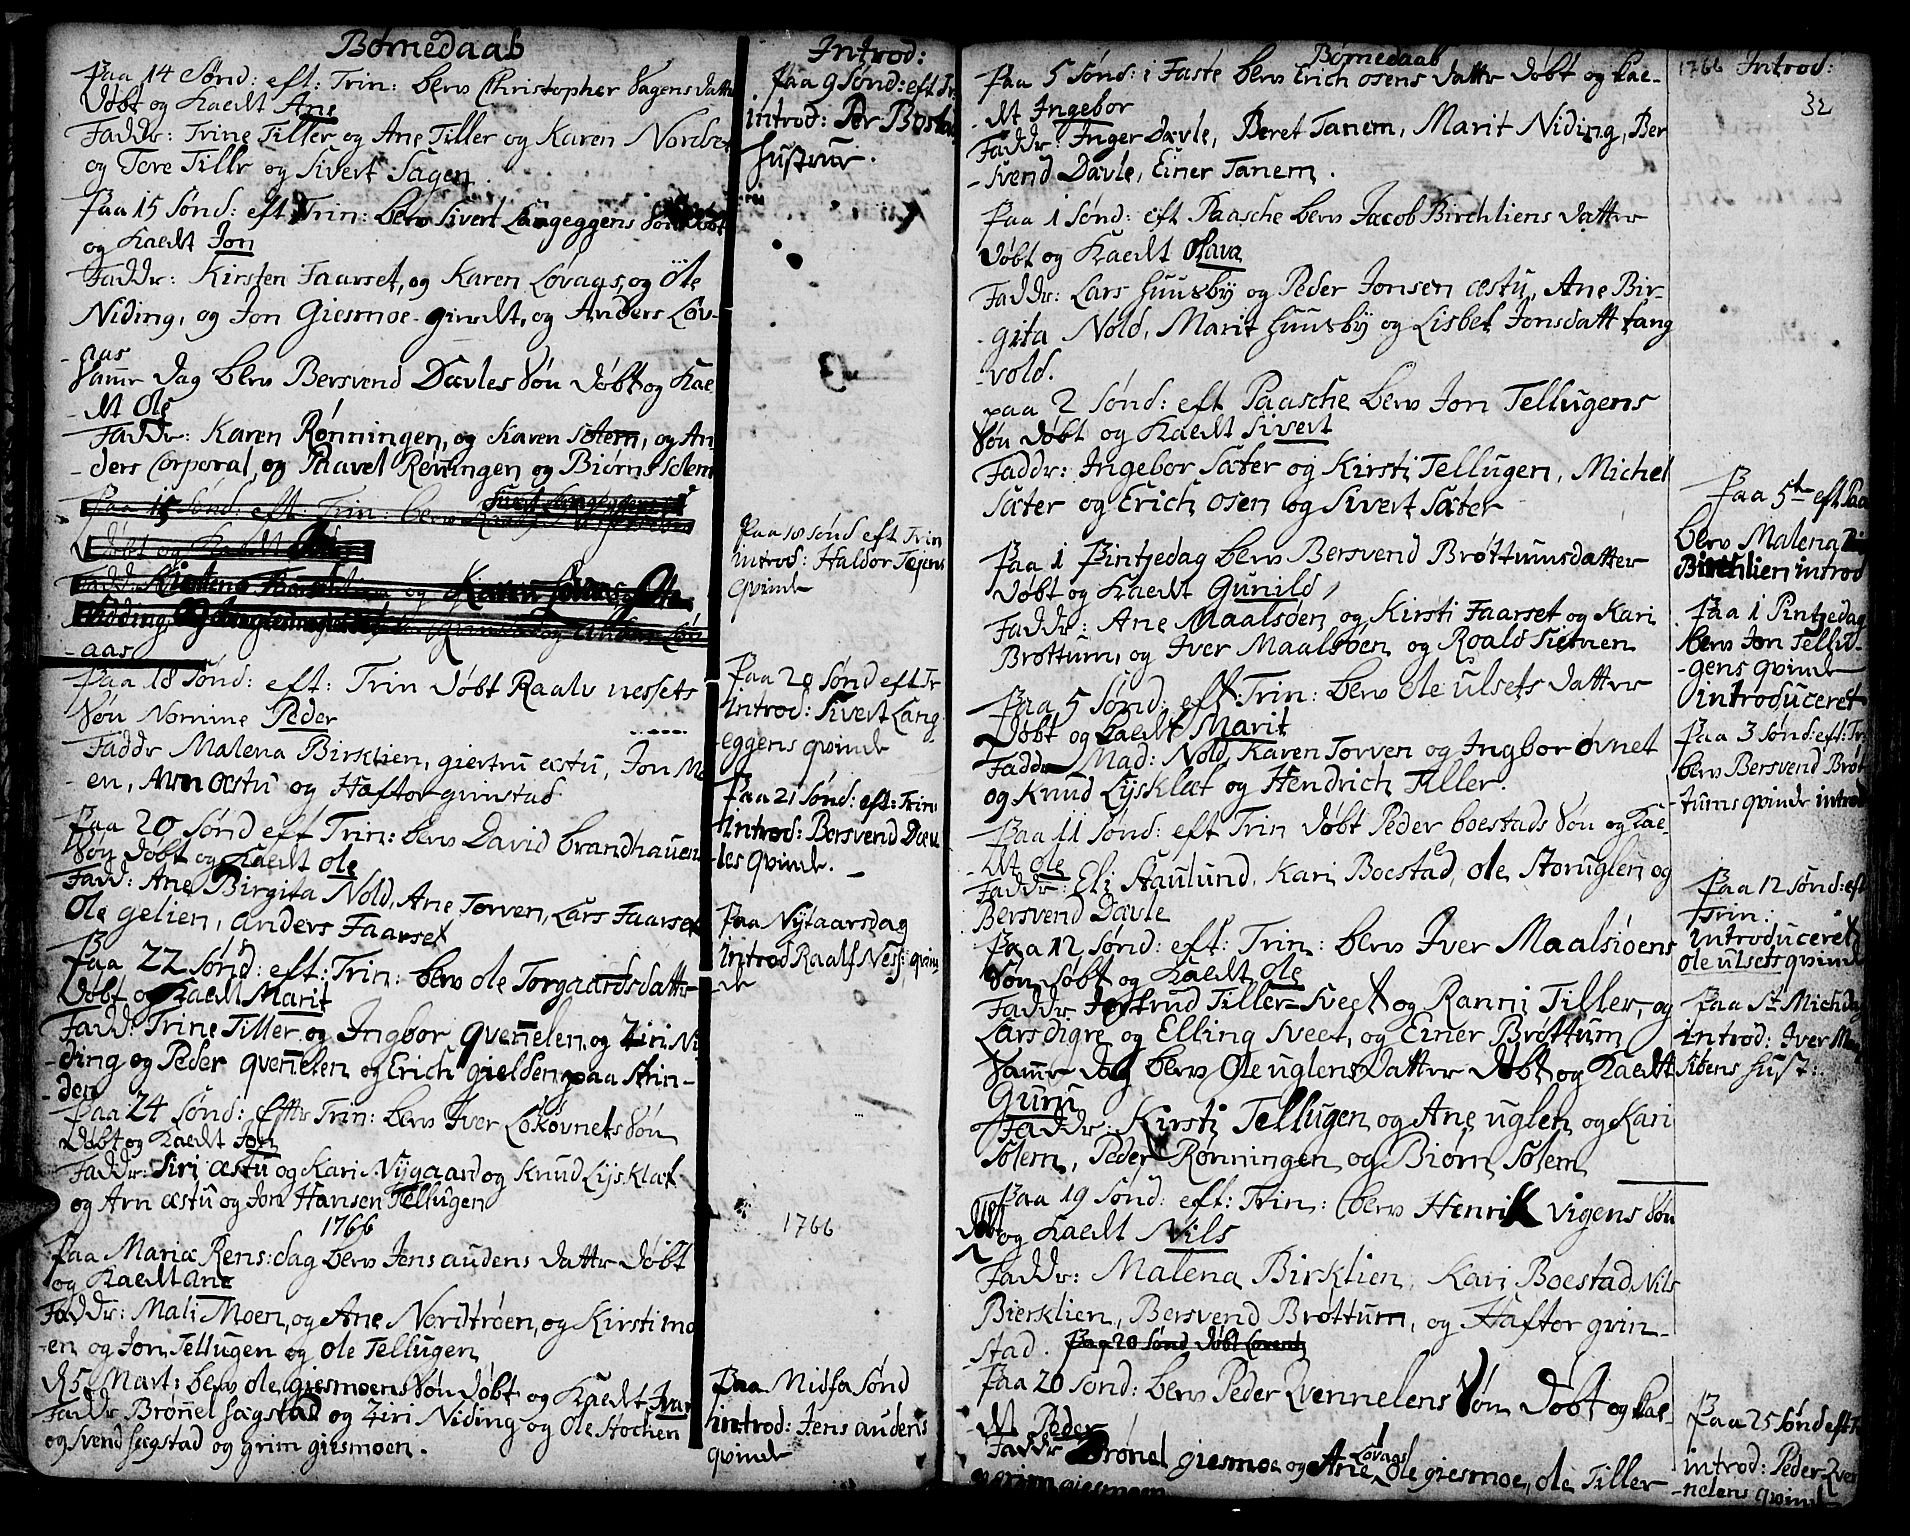 Børnedaab
Paa 14 Sønd: eft: Trin: blev Christopher Sagens datter
Døbt og Kaedt Ane
Faddr: Trine Tiller og Ane Tiller og Karen Nordset
og Tore Tillr og Sivert Sagen.
Paa 15 Sønd: eft Trin: blev Sivert Langeggens Søn Døbt
og Kaedt Jon
Faddr: Kirsten Faarset, og Karen Løvags, og Ole
Niding, og Jon Giesmoe og Anders Løv-
-aas
Samme dag blev Bersvend Davles Søn døbt og Kae-
-dt Ole
Faddr: Karen Rønningen, og Karen Solem, og An
-ders Corporal, og Paavel Rønningen og Biørn Solem
Paa 15 Sønd: eft: Trin: blev
Døbt og Kaedt
Faddr: og Karen
Nidding
-aas
Paa 18 Sønd: eft: Trin døbt Raalv nessets
Søn Nomine Peder
Faddr Malena Birklien, giertru æstu, Jon Mo
-en, Arn æstu og Haftor grinstad
Paa 20 Sønd eft Trin: blev David brandhauen
Søn døbt og Kaedt Ole
Fadd: Ane Birgita Nold, Ane Torven, Lars Faarset
Ole gelien, Anders Faarset
Paa 22 Sønd: eft: Trin: blev ole Torgaardsdatter
Døbt og Kaedt Marit
Fadd: Trine Tiller og Ingbor qvennelen, og Ziri Ni
-ding og Peder qvennelen og Erich gielden paa Strin-
-den
Paa 24 Sønd: Efttr Trin: blev Iver Løkøvnets Søn
Døbt og Kaedt Jon
Faddr: Siri æstu og Kari Nygaard og Knud Lysklæt
og Arn æstu og Jon Hansen Tellugen
1766
Paa Mariæ Rens: dag blev Jens audens datter døbt
og Kaedt Ane
Faddr: Mali Moen, og Ane Nordtrøen, og Kirsti mo
-en og Jon Tellugen og Ole Tellugen
d 5 Mart: blev ole giesmoens Søn døbt og Kaedt Ivar
Faddr Brønnel sægstad og Ziri Niding og Ole Stochen
og Svend sægstad og grim giesmoen.
Introd:
Paa 9 Sønd: eft Tr
introd: Per Bosta
Hustrue.
Paa 10 Sønd eft Trin
introd: Haldor Tejens
qvinde
Paa 20 Sønd eft Tr
introd: Sivert Lang
-eggens qvinde
Paa 21 Sønd: eft: Trin
introd: Bersvend Dav
-les qvinde.
Paa Nytaarsdag
introd Raalf Ness: qvin
-de
1766
Paa Midfa Sønd
introd: Jens audens
qvinde
Børnedaab
Paa 5 Sønd: i Faste blev Erich osens datter døbt og kae-
-dt Ingebor
Faddr: Inger Davle, Beret Tanem, Marit Niding, Ber
-svend Davle, Einer Tanem.
Paa 1 Sønd: eft Paasche blev Jacob Birchliens datter
døbt og Kaedt Olava
Faddr: Lars Huusby og Peder Jonsen æstu, Ane Bir-
-gita Nold, Marit Huusby og Lisbet Jonsdatt tang
-vold.
paa 2 Sønd: eft Paasche blev Jon Tellugens
Søn døbt og Kaedt Sivert
Faddr: Ingebor Sæter og Kirsti Tellugen, Michel
Sæter og Erich osen og Sivert Sæter
Paa 1 Pintzedag blev Bersvend Brøttumsdatter
døbt og Kaedt Gunild
Faddr: Ane Maalsøen og Kirsti Faarset og Kari
Brøttum, og Iver Maalsøen og Roald Sletnen
Paa 5 Sønd: eft: Trin: blev ole ulsets datter
Døbt og Kaedt Marit
Faddr Mad: Nold, Karen Torven og Ingbor øvnet
og Knud Lysklæt og Hendrich Tiller.
Paa 11 Sønd: eft Trin døbt Peder boestads Søn og Kae-
-dt ole
Faddr: Eli Staulund, Kari Boestad, ole Storuglen og
Bersvend Davle
Paa 12 Sønd: eft: Trin: blev Iver Maalsiøens
Søn døbt og Kaedt ole
Faddr Jostrud Tiller-Sveet og Ranni Tiller, og
Lars digre og Elling Sveet, og Einer Brøttum
Samme dag blev Ole uglens Datter døbt og Kaedt
Guru
Faddr: Kirsti Tellugen og Ane uglen og Kari
Solem, Peder Rønningen og Biørn Solem
Paa 19 Sønd: eft: Trin: blev Henrik Vigens Søn
døbt og Kaedt Nils
Faddr: Malena Birklien, Kari Boestad, Nils
Bierklien, Bersvend Brøttum, og Haftor grin-
-stad. Paa 20 Sønd døbt
Paa 20 Sønd: blev Peder Qvennelens Søn døbt og kae-
-dt Peder
Faddr Brønel giesmoe og Ane Løvaas, Ole giesmoe, ole Tiller
og grim giesmoen
1766 Introd:
32
Paa 5te eft Paa
blev Malena
Birchlien introd
Paa 1 Pintzedag
blev Jon Tellu-
-gens qvinde
introduceret
Paa 3 Sønd: eft: Tr
blev Bersvend Brøt
-tums qvinde introd
Paa 12 Sønd: eft
Trin:
introduceret
ole ulsets qvinde
Paa St Michda
introd: Iver Ma
siøens Hust:
Paa 25 Sønd eft
introd: Peder Qven
-nelens qvinde